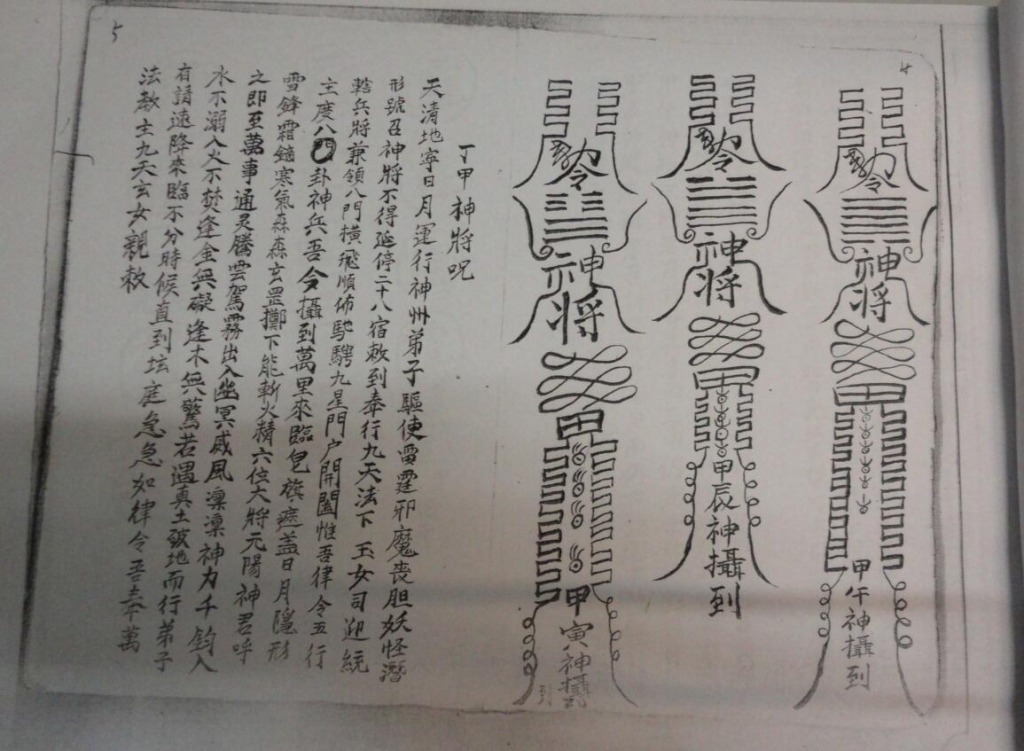 4
神將
甲午神攝到
神將
甲辰神攝到
神將
甲寅神攝到
5
丁甲神將呪
天清地寧日月運行神州弟子驅使雷霆邪魔喪胆妖怪潛
形號召神將不得延停二十八宿敕到奉行九天法下玉女司迎統
轄兵將兼領八門橫飛順佈馳騁九星門户開闔惟吾律令五行
主度八卦神兵吾今攝到萬里來臨皂旗遮盖日月隱形
雪鋒霜鎗寒氣森森玄罡擲下能斬火精六位大將元陽神君呼
之即至萬事通灵騰雲駕霧出入幽冥威風凜凜神力千鈞入
水不溺入火不焚逢金無礙逢木無驚若遇真土破地而行弟子
有請速降來臨不分時候直到坛庭急急如律令吾奉萬
法教主九天玄女親敕